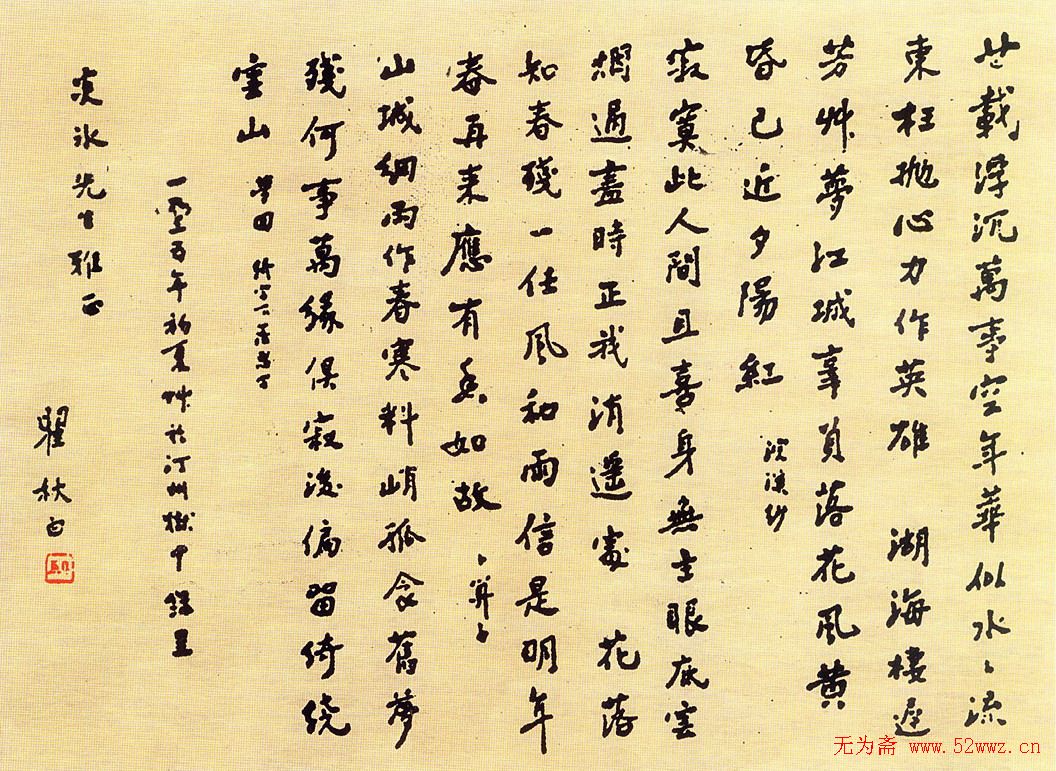 廿載浮沉萬事空年華似水水流
東枉拋心力作英雄 湖海棲遲
芳艸夢江城辜負落花風黃
昏已近夕陽紅 浣溪沙
寂寞此人間且喜身無主眼底雲
烟過盡時正我逍遙處 花落
知春殘一任風和雨信是明年
春再來應有香如故 卜算子
山城細雨作春寒料峭孤衾舊夢
殘何事萬緣俱寂後偏留綺繞
雲山 夢回
年初夏 於汀州獄中 錄呈
冰先生雅正
瞿秋白
无为斋 www.52wwz.cn